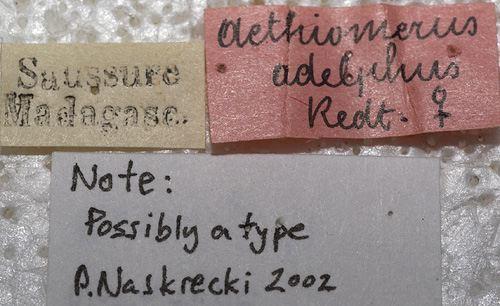 Saussure
Madagasc.
Aethiomerus
adelphus
Redt. ♀
Note:
Possibly a type
P.Naskrecki 2002